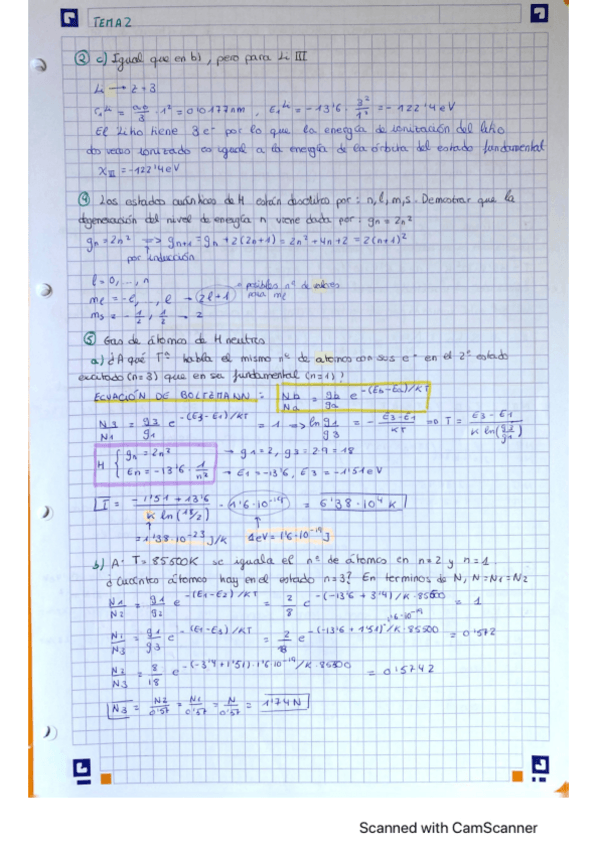 TEMA 2
② c) Igual que en b), pero para Li III
Li → Z = 3
r₁ᴸⁱ = a₀/3 · 1² = 0'0177 nm, E₁ᴸⁱ = -13'6 · 3²/1² = -122'4 eV
El litio tiene 3 e⁻ por lo que la energía de ionización del litio
dos veces ionizado es igual a la energía de la órbita del estado fundamental
X_III = -122'4 eV
④ Los estados cuánticos de H están descritos por: n, l, m, s. Demostrar que la
degeneración del nivel de energía n viene dada por: gn = 2n²
gn = 2n² ⇒ gn+1 = gn + 2(2n+1) = 2n² + 4n + 2 = 2(n+1)²
por inducción
l = 0, ..., n
ml = -l, ..., l → 2l+1 → posibles nº de valores para ml
ms = -1/2, 1/2 → 2
⑤ Gas de átomos de H neutro
a) ¿A qué Tª habría el mismo nº de átomos con sus e⁻ en el 2º estado
excitado (n=3) que en su fundamental (n=1)?
ECUACIÓN DE BOLTZMANN: Nb/Na = gb/ga e^-(Eb-Ea)/KT
N3/N1 = g3/g1 e^-(E3-E1)/KT = 1 ⇒ ln g1/g3 = - E3-E1/KT ⇒ T = E3-E1/K ln(g3/g1)
H { gn = 2n² → g1 = 2, g3 = 2·9 = 18
En = -13'6 · 1/n² → E1 = -13'6, E3 = -1'51 eV
T = -1'51 + 13'6/K ln(18/2) · 1'6·10⁻¹⁹ = 6'38·10⁴ K
= 1'38·10⁻²³ J/K 1eV = 1'6·10⁻¹⁹ J
b) A T = 85500K se iguala el nº de átomos en n=2 y n=1.
¿Cuántos átomos hay en el estado n=3? En términos de N, N = N1 = N2
N1/N2 = g1/g2 e^-(E1-E2)/KT = 2/8 e^-(-13'6 + 3'4)/K·85500 = 1
N1/N3 = g1/g3 e^-(E1-E3)/KT = 2/18 e^-(-13'6 + 1'51)·1'6·10⁻¹⁹/K·85500 = 0'572
N2/N3 = 8/18 e^-(-3'4+1'51)·1'6·10⁻¹⁹/K·85500 = 0'5742
N3 = N2/0'57 = N1/0'57 = N/0'57 = 1'74 N
Scanned with CamScanner